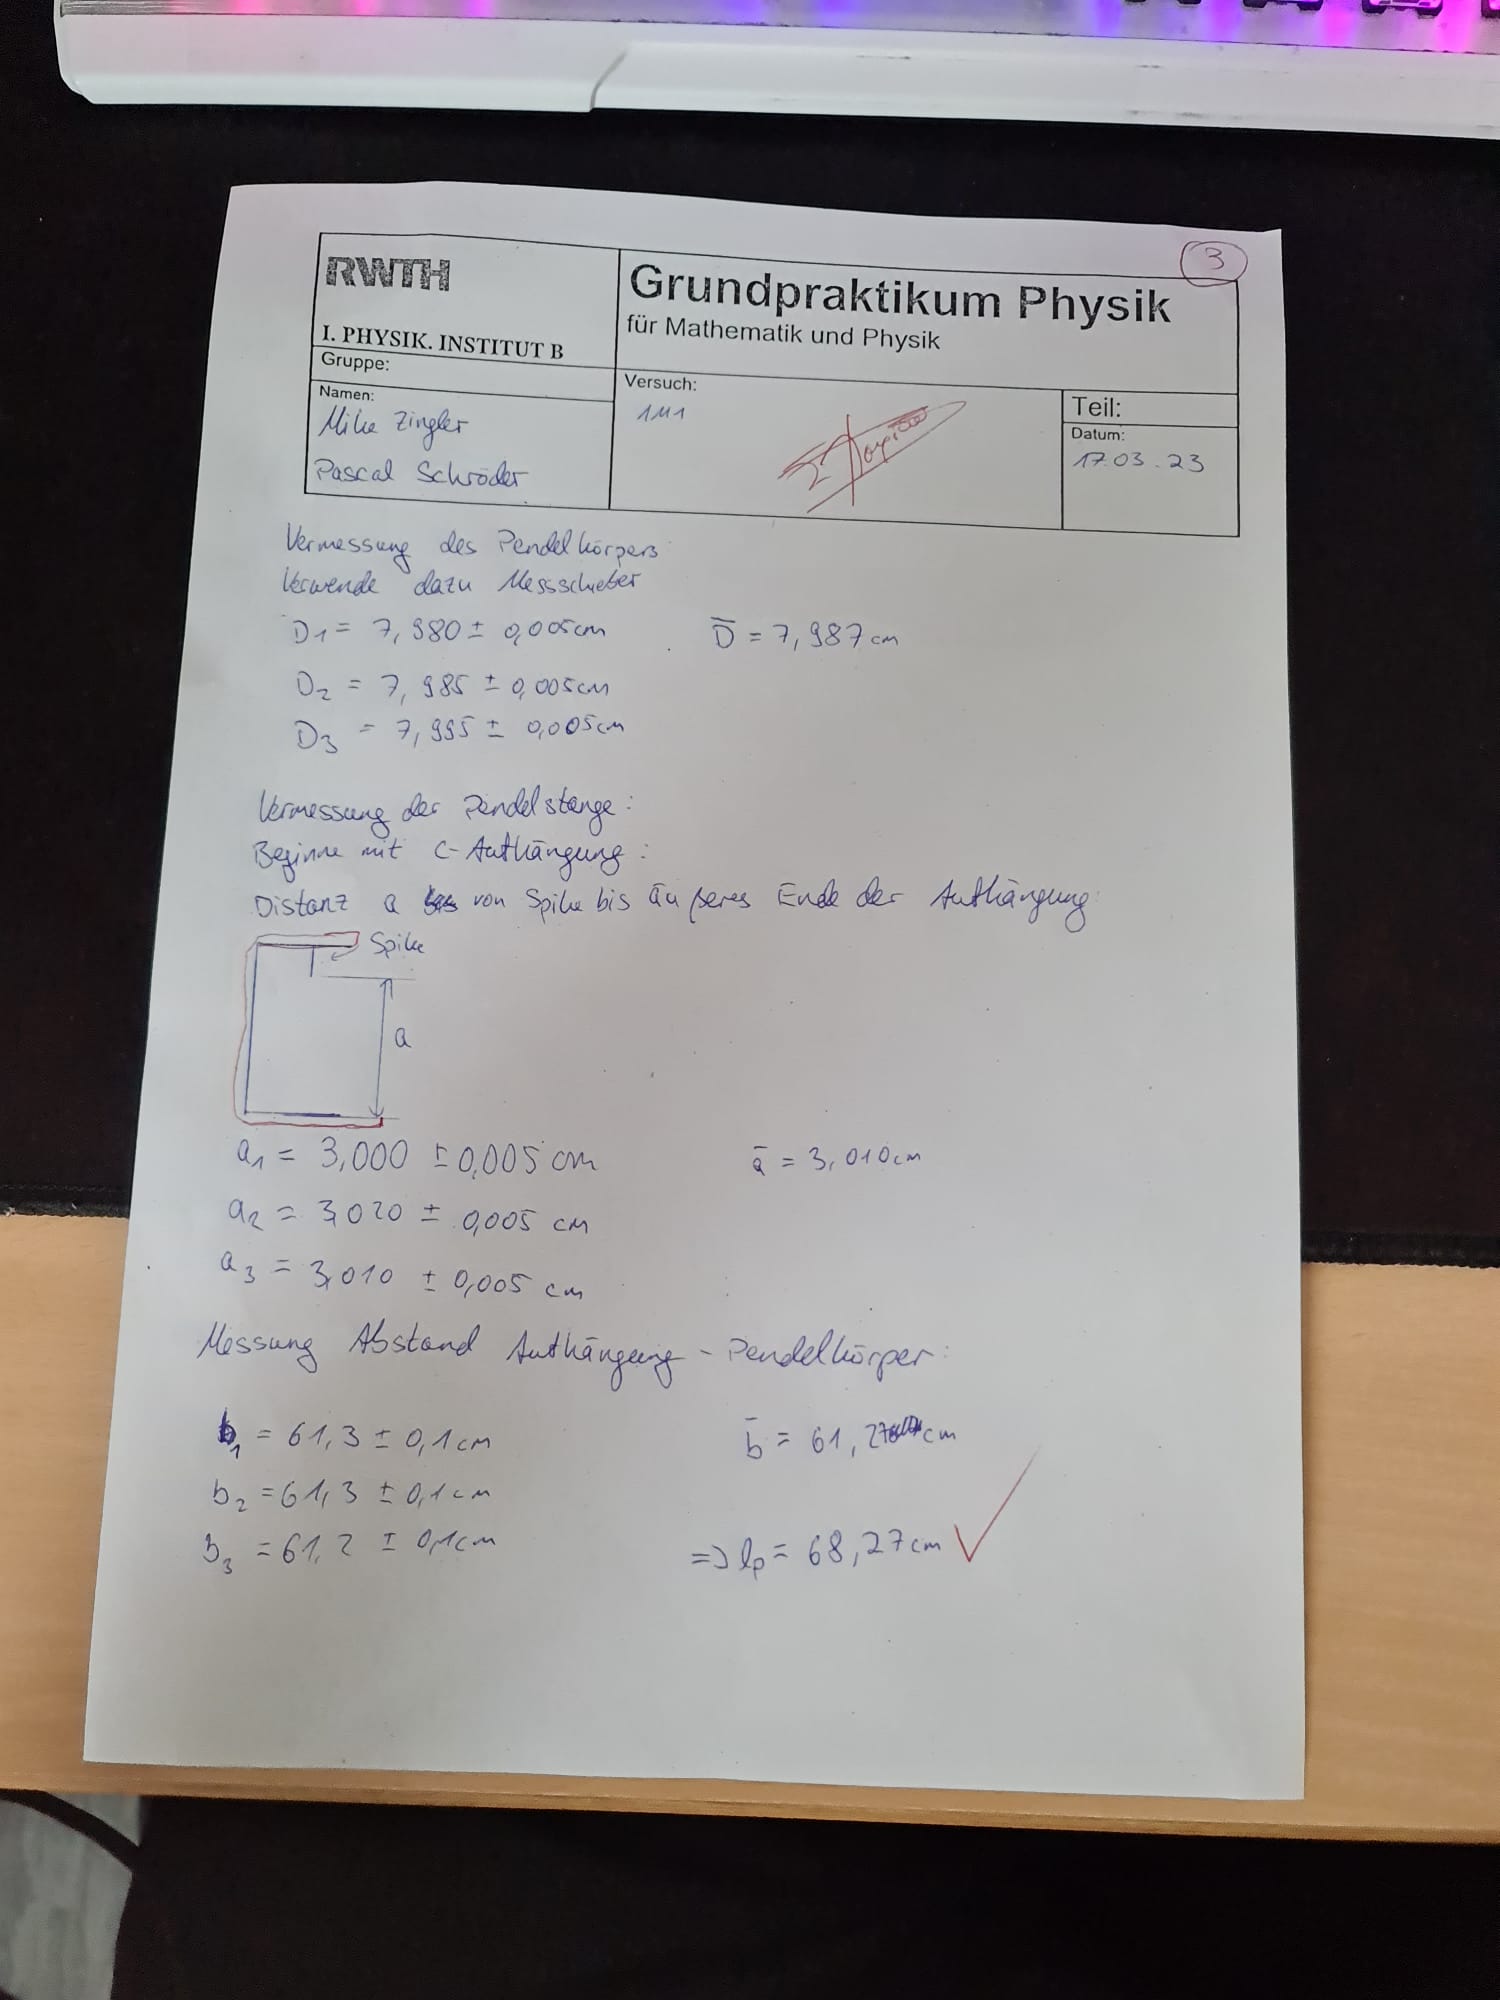 3
RWTH
I. PHYSIK. INSTITUT B
Grundpraktikum Physik
für Mathematik und Physik
Gruppe:
Namen:
Mike Zingler
Pascal Schröder
Versuch:
1M1
Teil:
Datum:
17.03.23
Vermessung des Pendelkörpers
Verwende dazu Messschieber
D1 = 7,980 ± 0,005cm
D̄ = 7,987cm
D2 = 7,985 ± 0,005cm
D3 = 7,995 ± 0,005cm
Vermessung der Pendelstange:
Beginne mit C-Aufhängung:
Distanz a von Spike bis äußeres Ende der Aufhängung:
Spike
a
a1 = 3,000 ± 0,005 cm
ā = 3,010cm
a2 = 3,020 ± 0,005 cm
a3 = 3,010 ± 0,005 cm
Messung Abstand Aufhängung - Pendelkörper:
b1 = 61,3 ± 0,1cm
b̄ = 61,27 cm
b2 = 61,3 ± 0,1cm
b3 = 61,2 ± 0,1cm
=> lp = 68,27cm